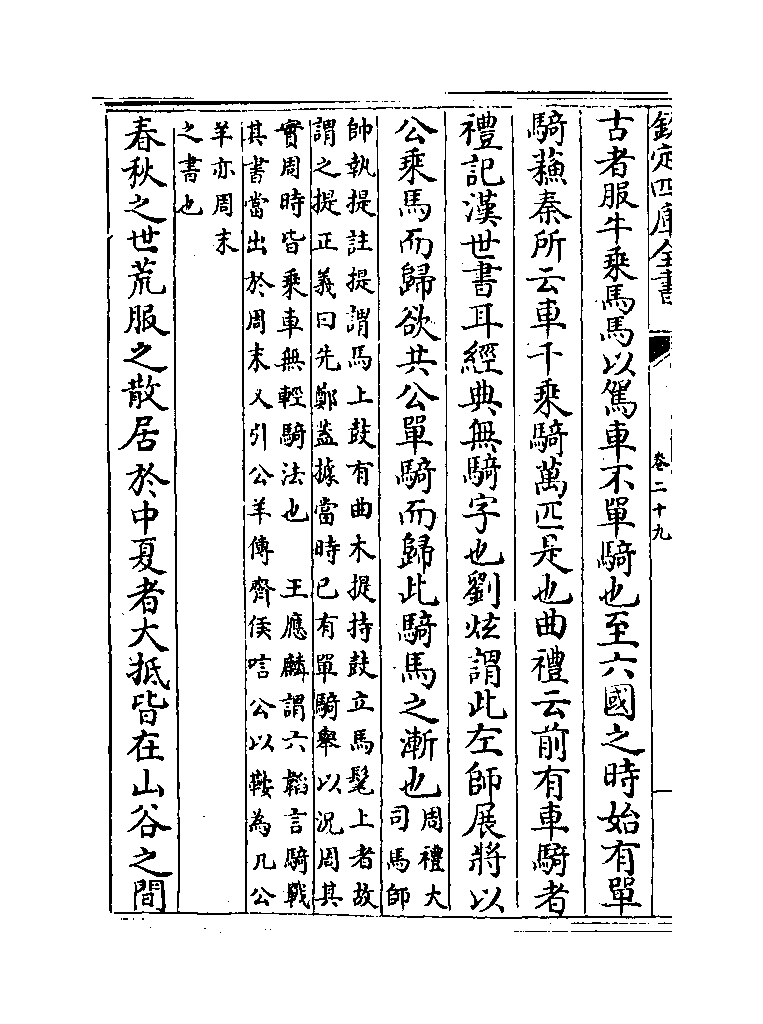 欽定四庫全書
卷二十九
古者服牛乘馬馬以駕車不單騎也至六國之時始有單
騎蘓秦所云車千乘騎萬匹是也曲禮云前有車騎者
禮記漢世書耳經典無騎字也劉炫謂此左師展將以
公乘馬而歸欲共公單騎而歸此騎馬之漸也
周禮大
司馬師
帥執提註提謂馬上鼓有曲木提持鼓立馬髦上者故
謂之提正義曰先鄭盖據當時已有單騎舉以况周其
實周時皆乘車無輕騎法也　王應麟謂六韜言騎戰
其書當出於周末又引公羊傳齊侯唁公以鞍為几公
羊亦周末
之書也
春秋之世荒服之散居於中夏者大抵皆在山谷之間